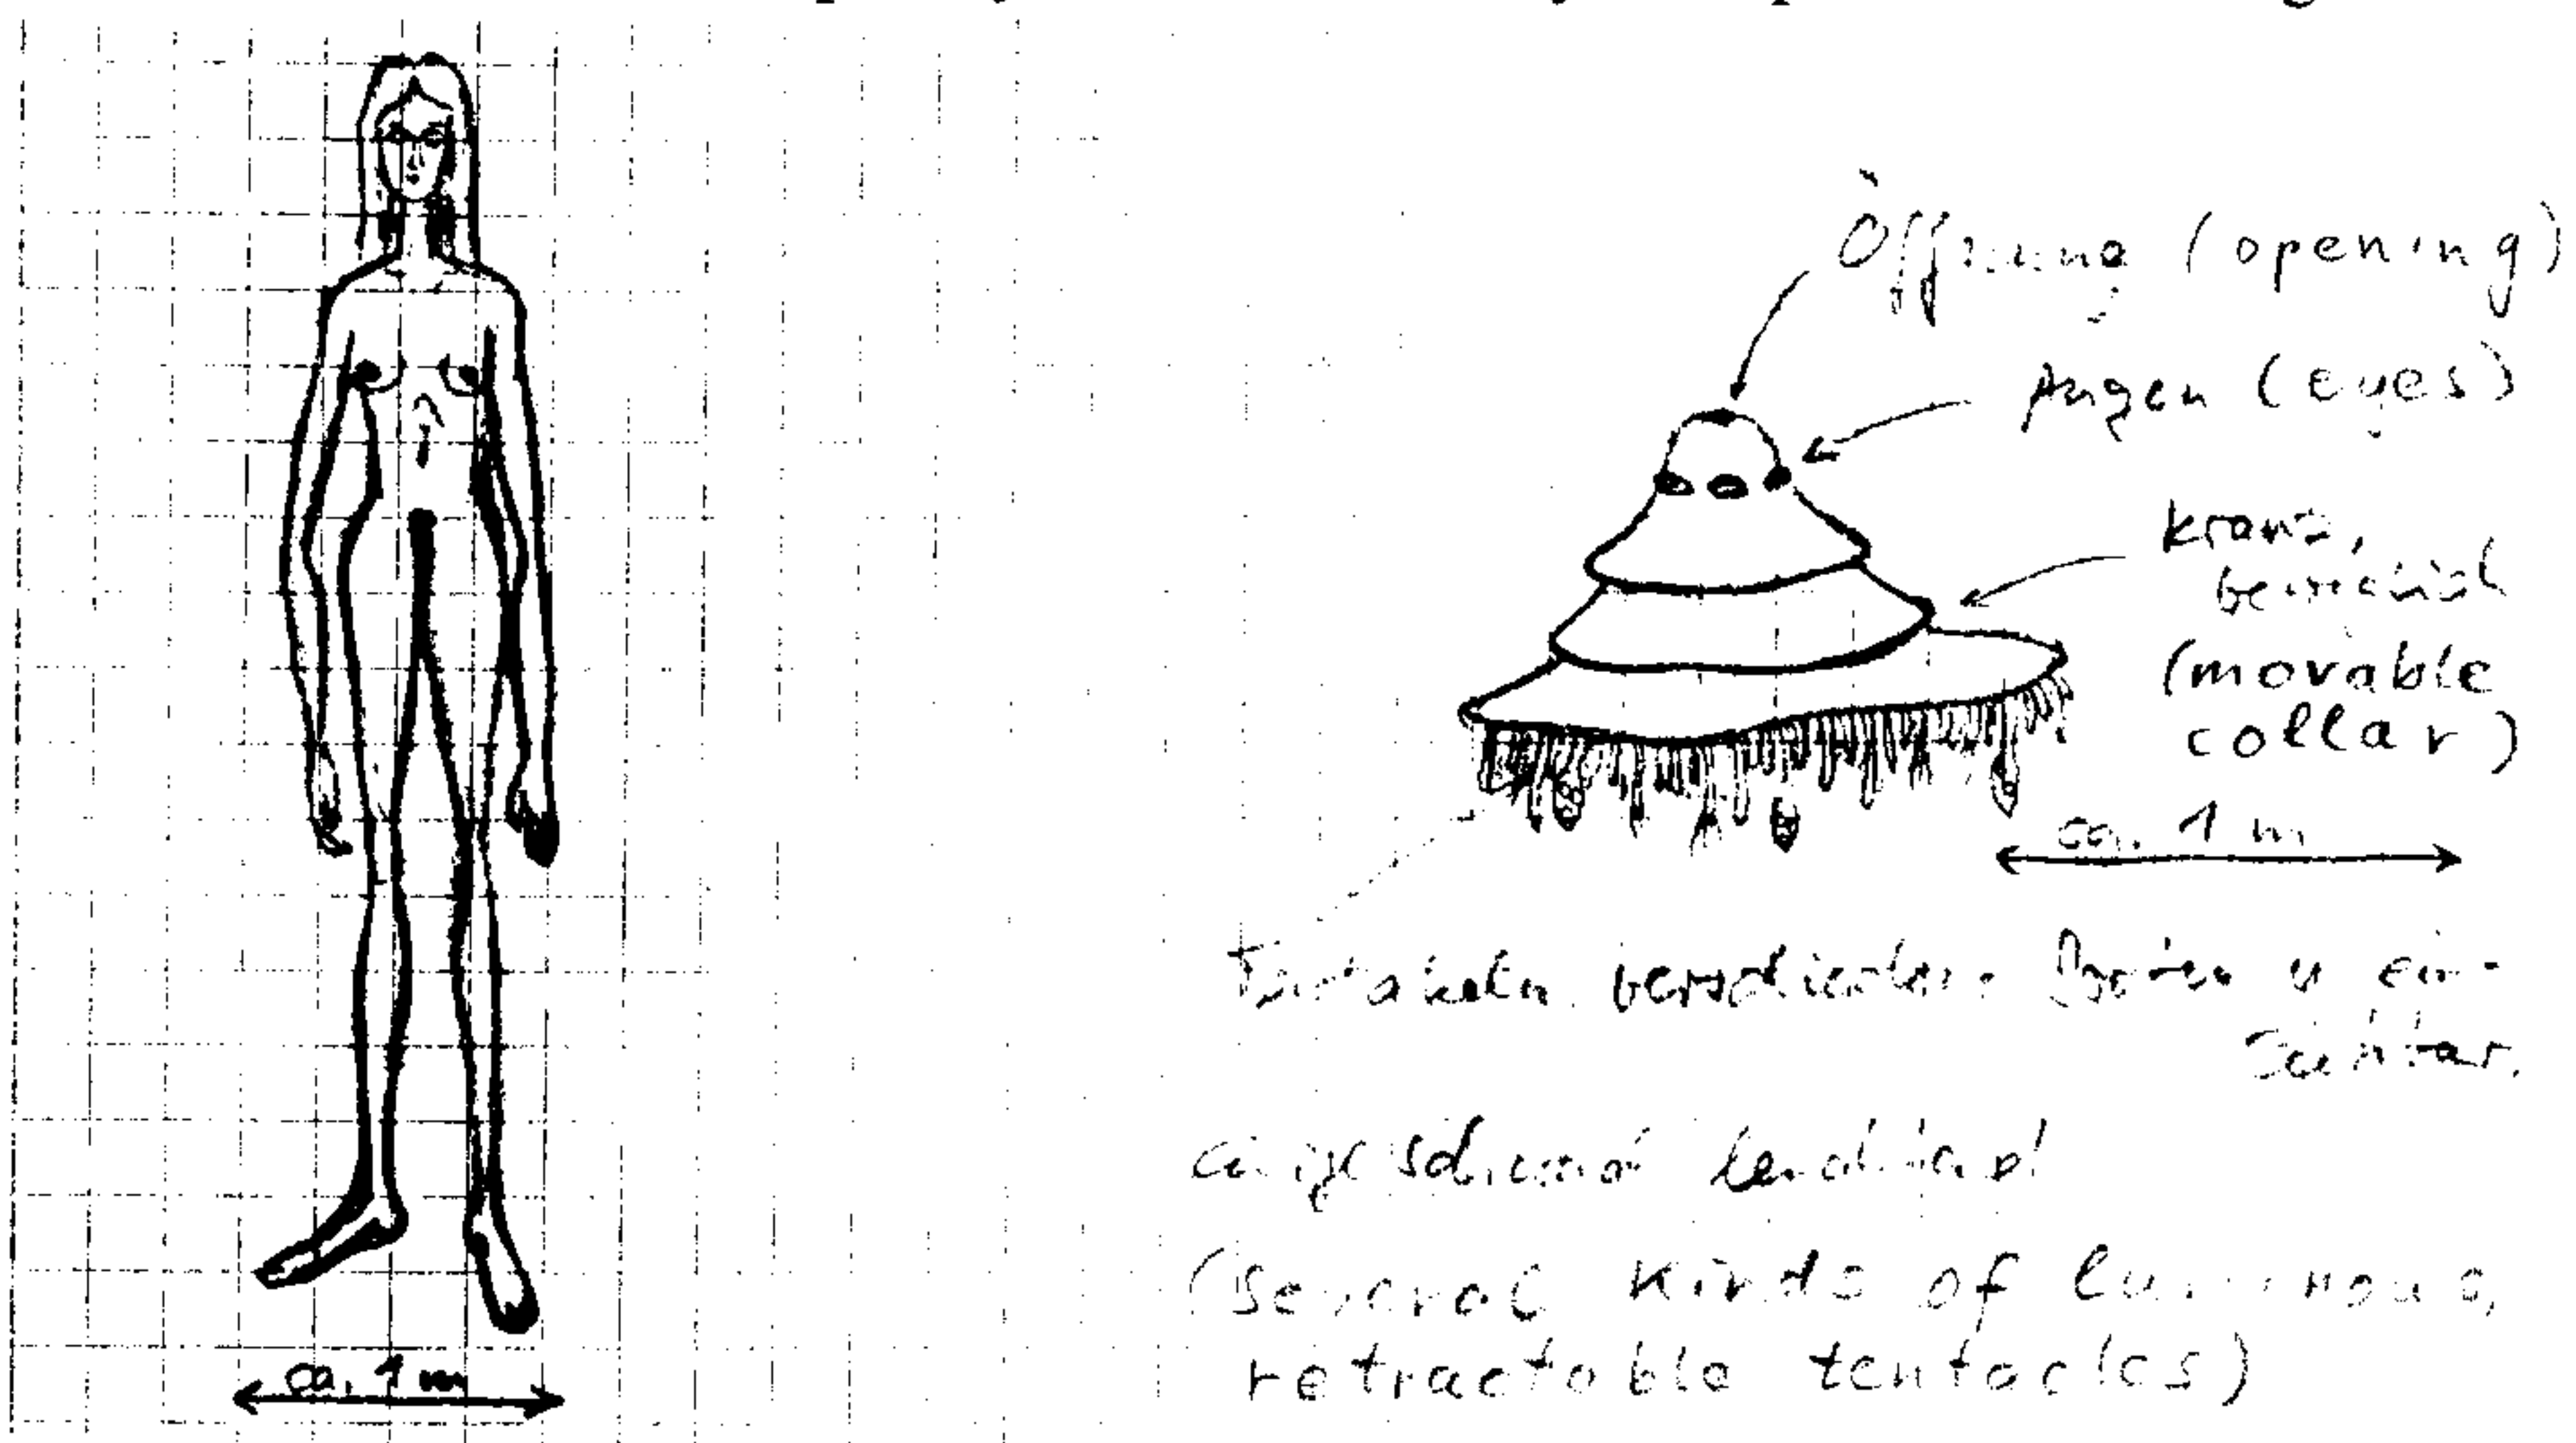 Öffnung (opening)
Augen (eyes)
Kranz,
beweglich
(movable
collar)
ca. 1 m
Tentakeln verschiedener u ein-
ziehbar.
leuchtend
(several kinds of luminous,
retractable tentacles)
ca. 1 m